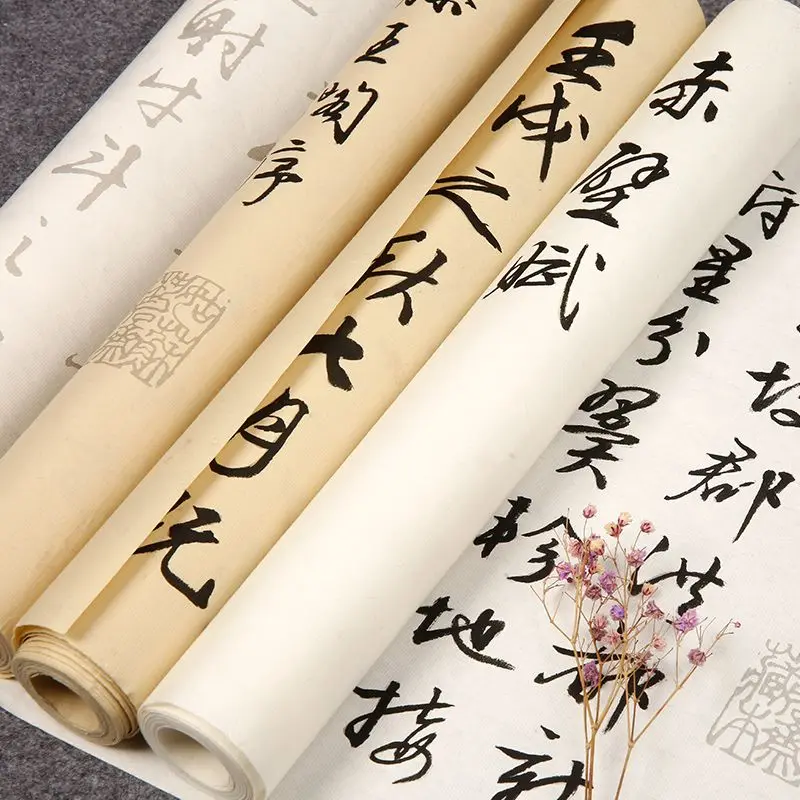 故郡洪都新
府星分翼軫地接
赤壁赋
壬戌之秋七月既
滕王阁序
射牛斗之